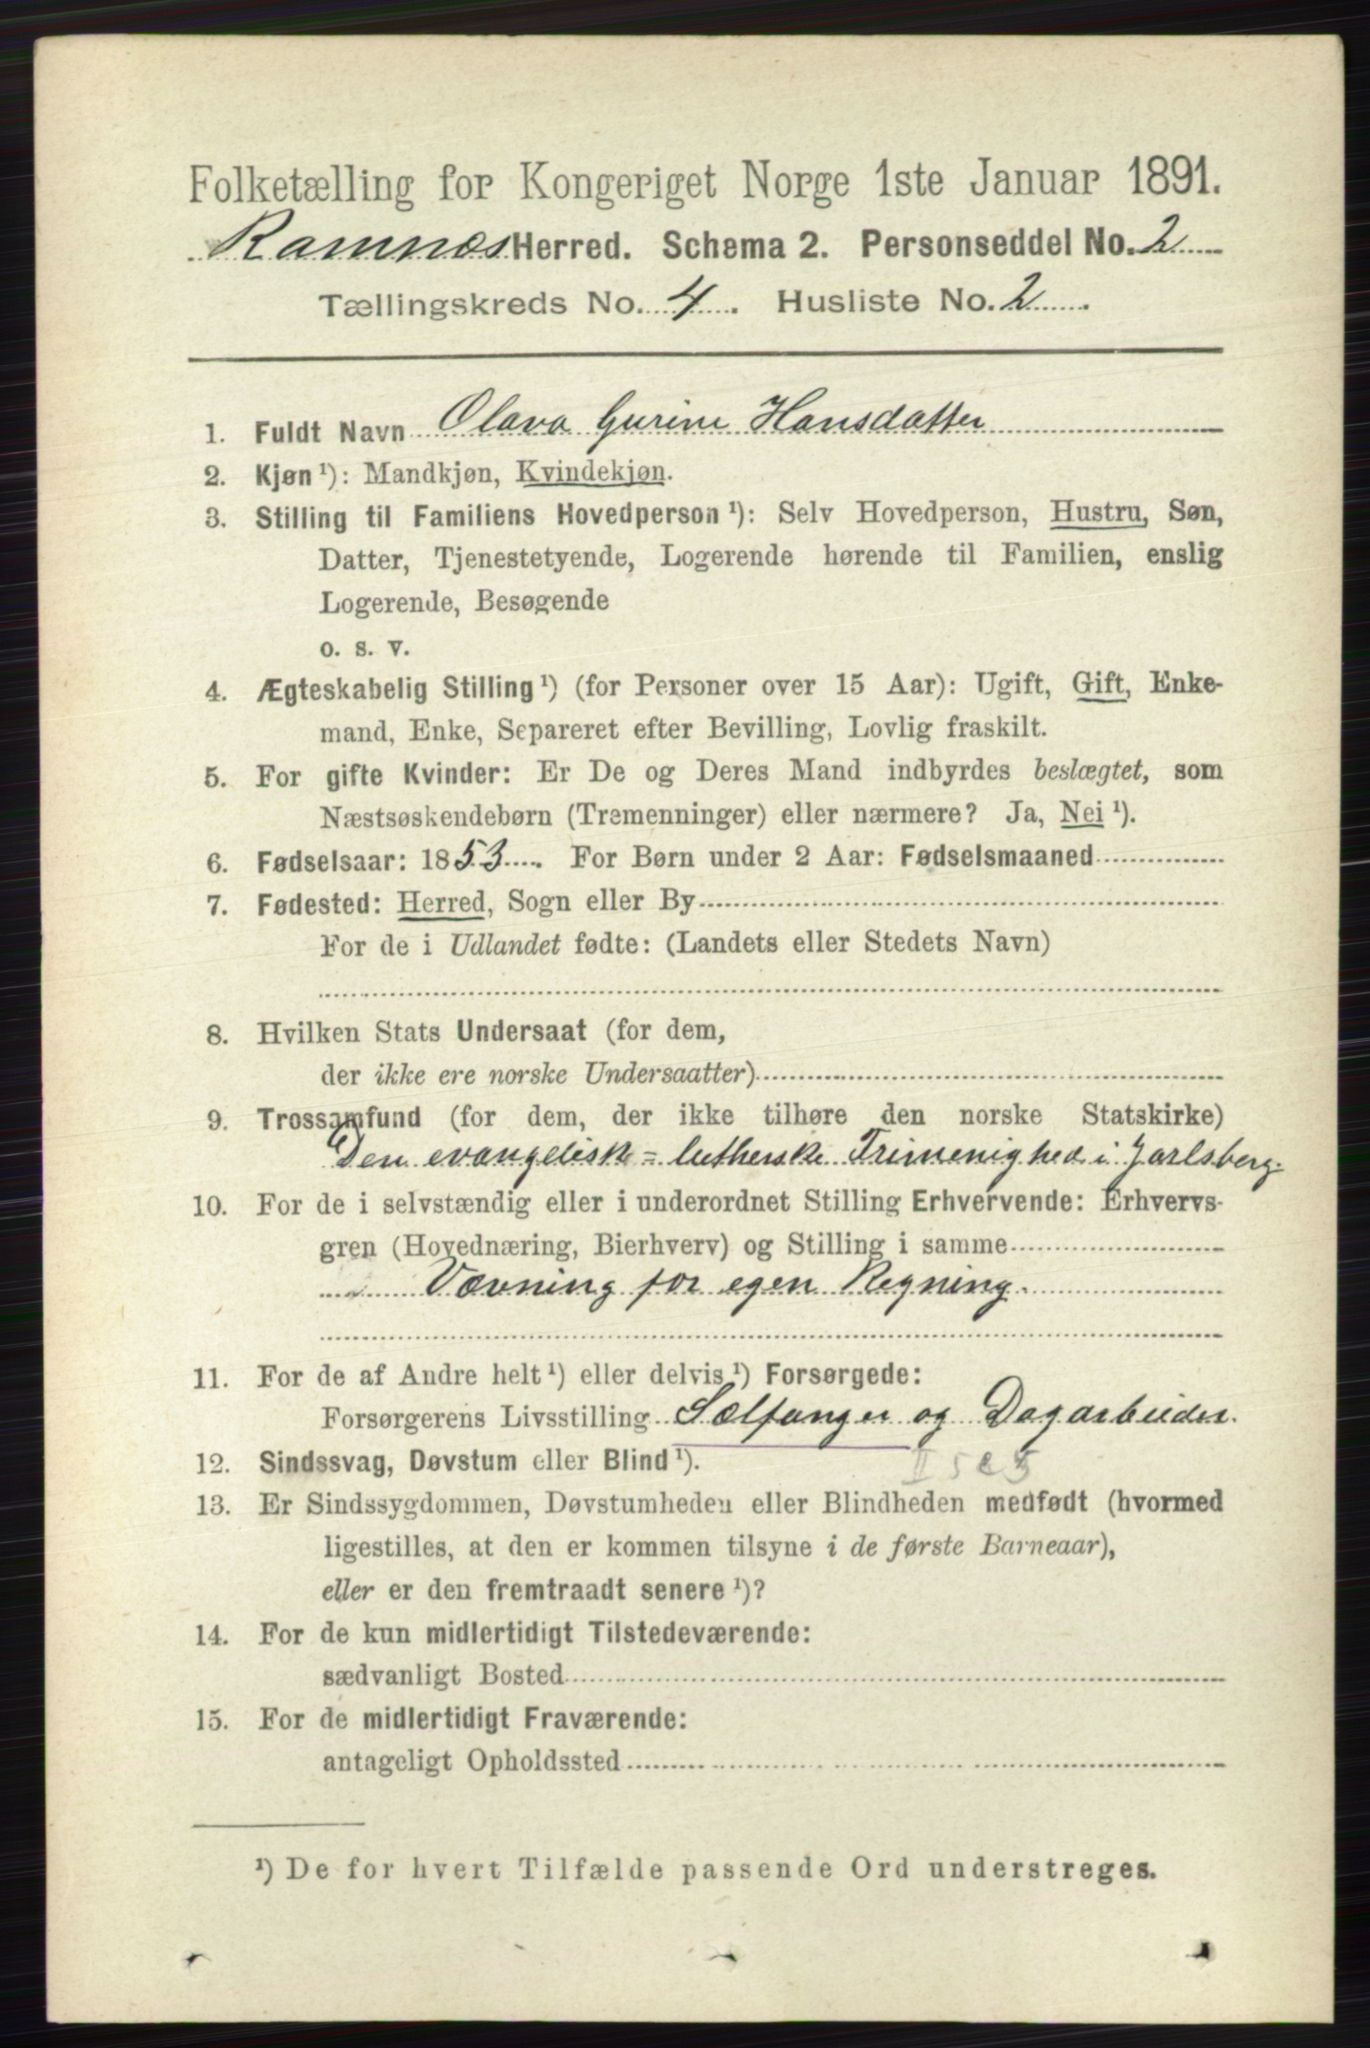 Folketælling for Kongeriget Norge 1ste Januar 1891.
Ramnæs Herred. Schema 2. Personseddel No. 2
Tællingskreds No. 4. Husliste No. 2.
1. Fuldt Navn Olava Gurine Hansdatter
2. Kjøn ¹): Mandkjøn, Kvindekjøn.
3. Stilling til Familiens Hovedperson ¹): Selv Hovedperson, Hustru, Søn,
Datter, Tjenestetyende, Logerende hørende til Familien, enslig
Logerende, Besøgende
o. s. v.
4. Ægteskabelig Stilling ¹) (for Personer over 15 Aar): Ugift, Gift, Enke-
mand, Enke, Separeret efter Bevilling, Lovlig fraskilt.
5. For gifte Kvinder: Er De og Deres Mand indbyrdes beslægtet, som
Næstsøskendebørn (Tremenninger) eller nærmere? Ja, Nei ¹).
6. Fødselsaar: 1853. For Børn under 2 Aar: Fødselsmaaned
7. Fødested: Herred, Sogn eller By
For de i Udlandet fødte: (Landets eller Stedets Navn)
8. Hvilken Stats Undersaat (for dem,
der ikke ere norske Undersaatter)
9. Trossamfund (for dem, der ikke tilhøre den norske Statskirke)
Den evangelisk = lutherske Frimenighed i Jarlsberg.
10. For de i selvstændig eller i underordnet Stilling Erhvervende: Erhvervs-
gren (Hovednæring, Bierhverv) og Stilling i samme
Vævning for egen Regning.
11. For de af Andre helt ¹) eller delvis ¹) Forsørgede:
Forsørgerens Livsstilling Sælfanger og Dagarbeider.
12. Sindssvag, Døvstum eller Blind ¹).
13. Er Sindssygdommen, Døvstumheden eller Blindheden medfødt (hvormed
ligestilles, at den er kommen tilsyne i de første Barneaar),
eller er den fremtraadt senere ¹)?
14. For de kun midlertidigt Tilstedeværende:
sædvanligt Bosted
15. For de midlertidigt Fraværende:
antageligt Opholdssted
¹) De for hvert Tilfælde passende Ord understreges.